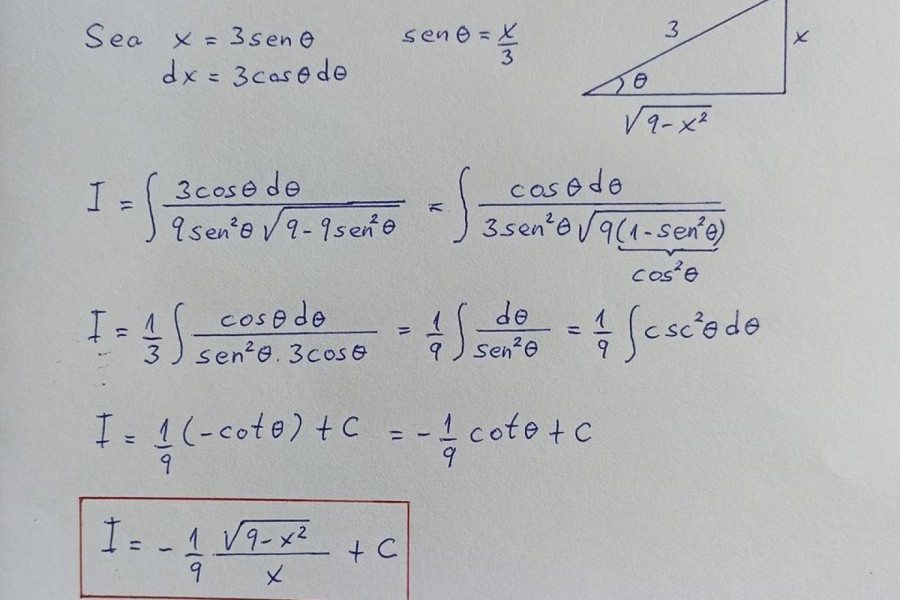 Sea x = 3senθ senθ = x/3
dx = 3cosθdθ
3 x θ √(9-x²)
I = ∫ 3cosθdθ / (9sen²θ √(9-9sen²θ)) = ∫ cosθdθ / (3sen²θ √(9(1-sen²θ)))
cos²θ
I = 1/3 ∫ cosθdθ / (sen²θ . 3cosθ) = 1/9 ∫ dθ / sen²θ = 1/9 ∫ csc²θdθ
I = 1/9 (-cotθ) + C = - 1/9 cotθ + C
I = - 1/9 √(9-x²) / x + C